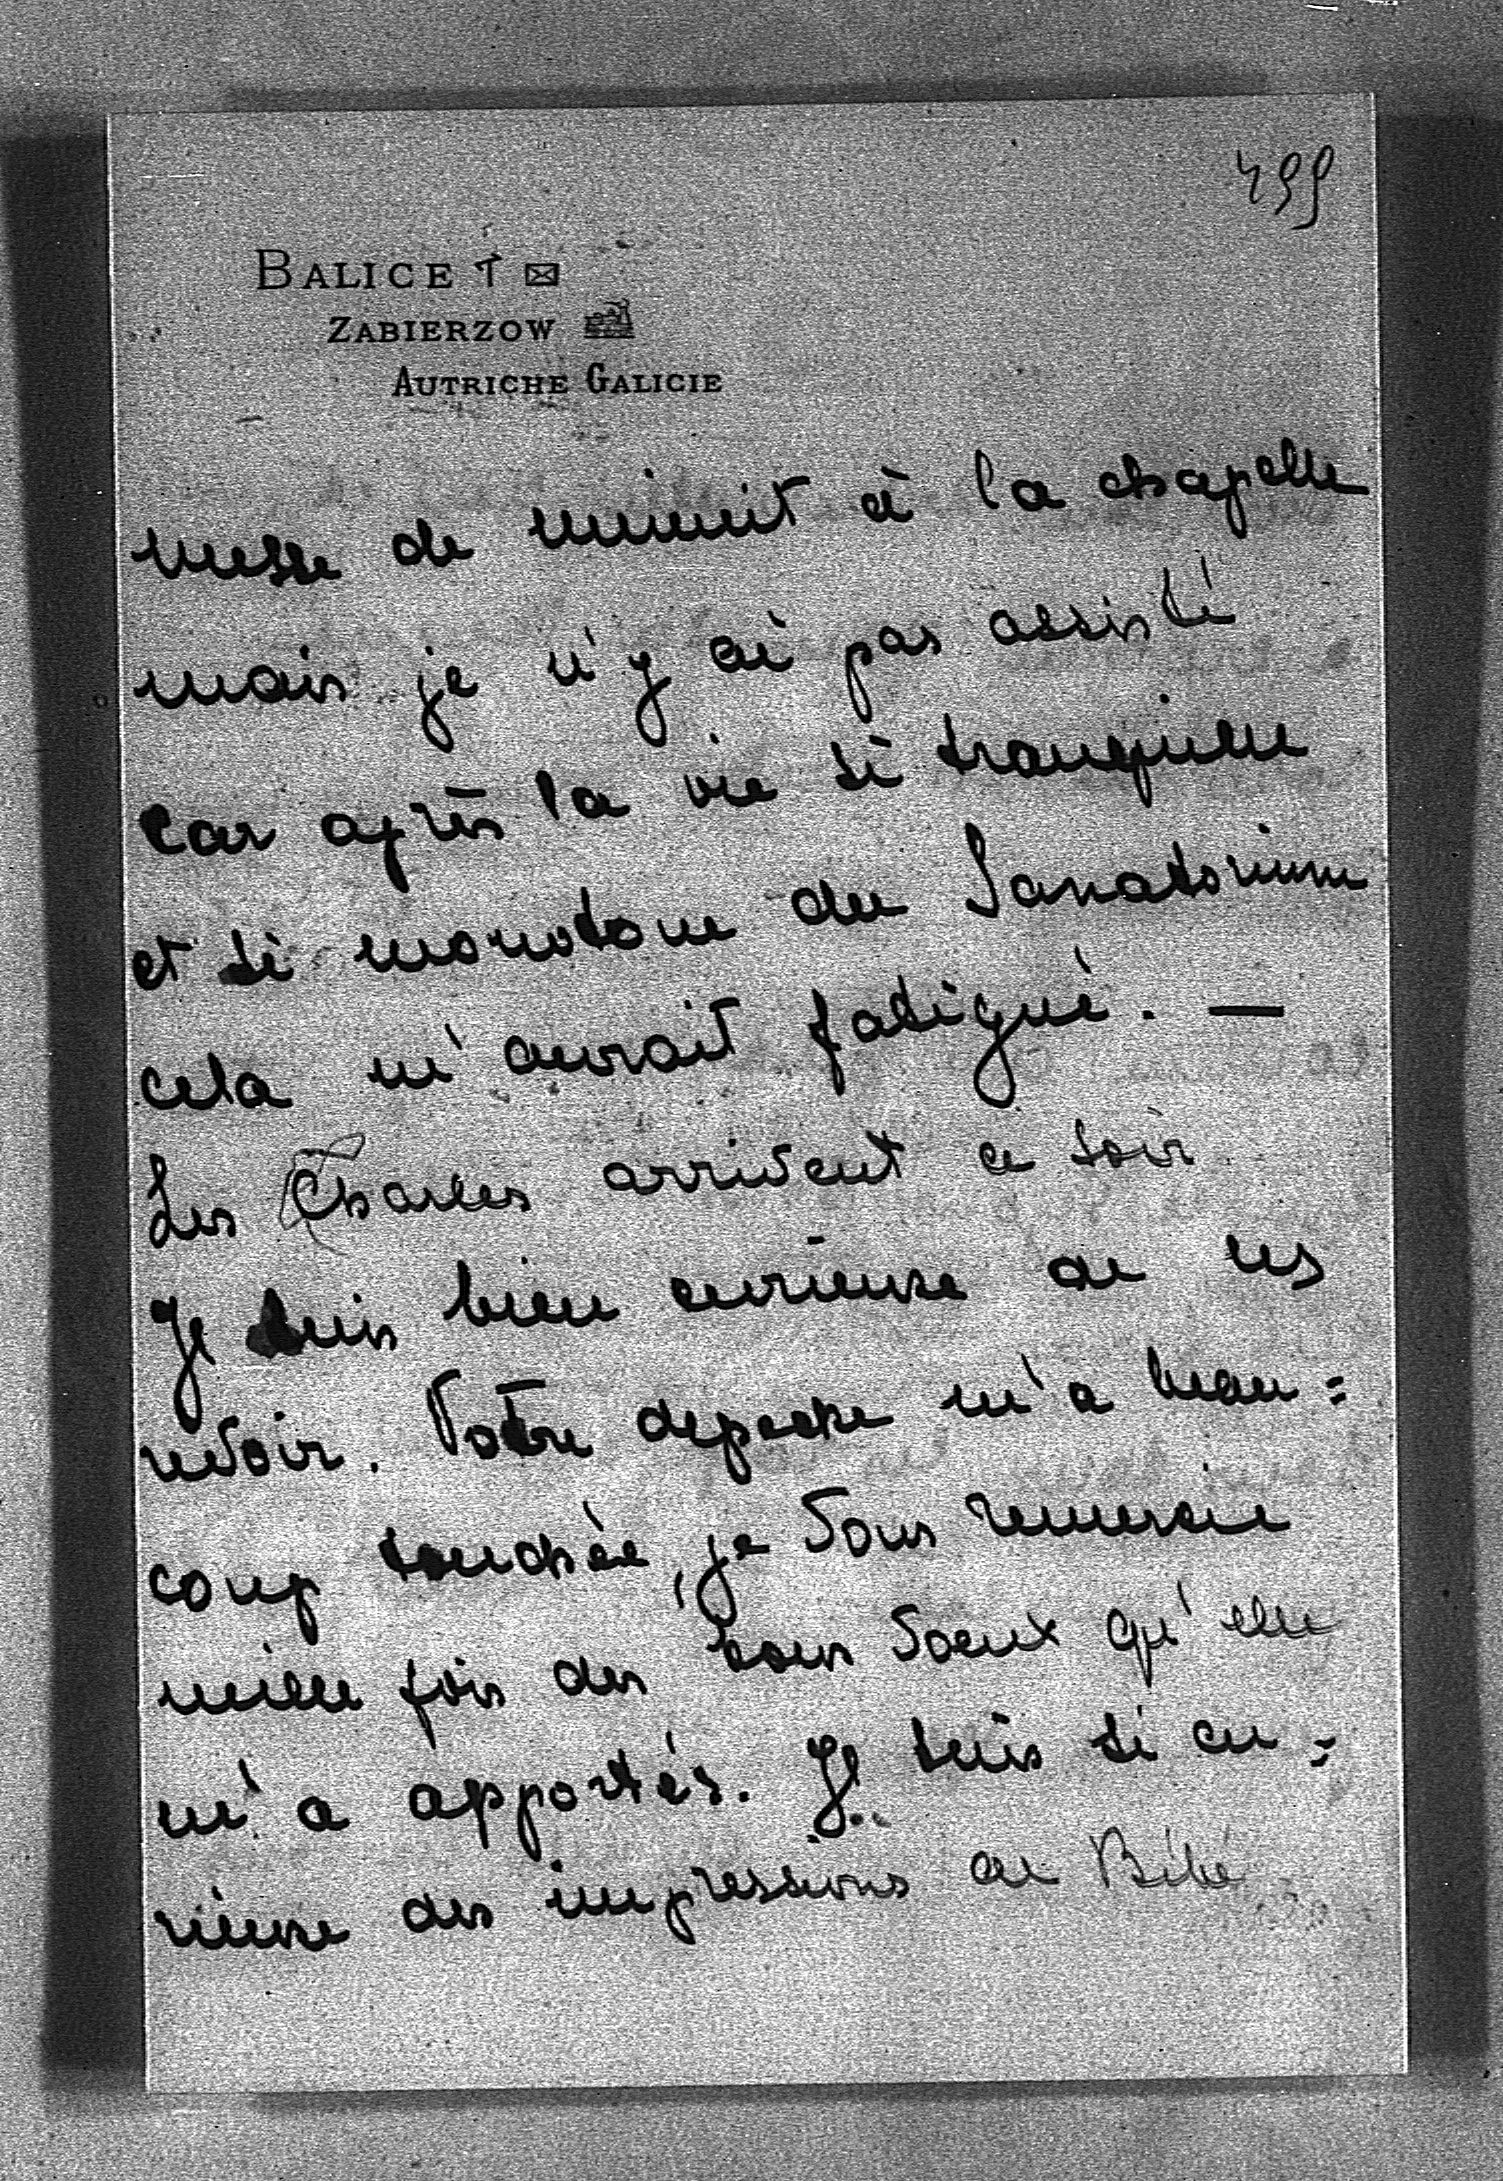 499
BALICE
ZABIERZOW
AUTRICHE GALICIE
messe de minuit à la chapelle
mais je n'y ai pas assisté
car après la vie si tranquille
et si monotone du Sanatorium
cela m'aurait fatigué. —
Les Charles arrivent ce soir
Je suis bien curieuse de les
revoir. Votre depeche m'a beau=
coup touchée, je Vous remercie
mille fois des bons Voeux qu'elle
m'a apportés. Je suis si cu=
rieuse des impressions de Bébé